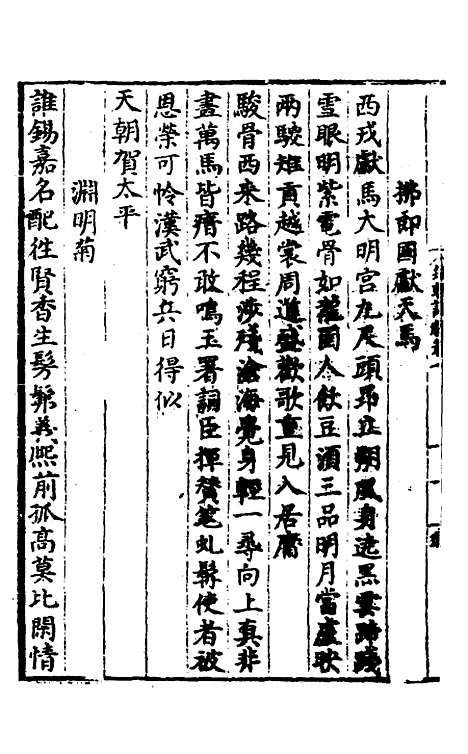 拂郎國獻天馬
西戎獻馬大明宮九尺頭昂立朔風身迷黑雲蹄踐
雪眼明紫電骨如龍圉人飲豆須三品明月當廬映
兩駿雉貢越裳周道盛歡歌重見入居庸
駿骨西来路幾程莎殘滄海覺身輕一尋向上真非
畫萬馬皆瘖不敢鳴玉署詞臣揮贊筆虬髯使者被
恩榮可怜漢武窮兵日得似
天朝賀太平
淵明菊
誰錫嘉名配徃賢香生髣髴義熙前孤高莫比閑情